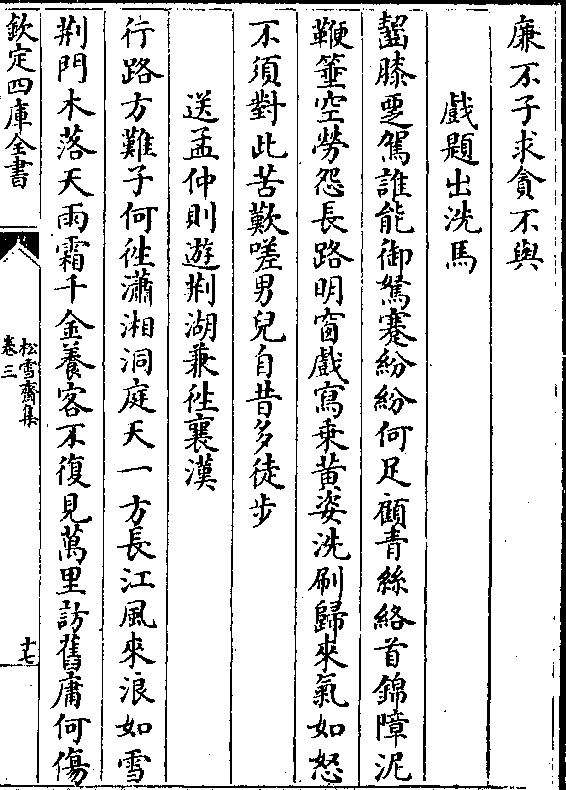 廉不子求貪不與
戲題出洗馬
齧膝覂駕誰能御駑蹇紛紛何足顧青絲絡首錦障泥
鞭箠空勞怨長路明窗戲寫乗黃姿洗刷歸來氣如怒
不須對此苦歎嗟男兒自昔多徒步
送孟仲則遊荆湖兼徃襄漢
行路方難子何徃瀟湘洞庭天一方長江風來浪如雪
荆門木落天雨霜千金養客不復見萬里訪舊庸何傷
欽定四庫全書
松雪齋集
卷三
十七